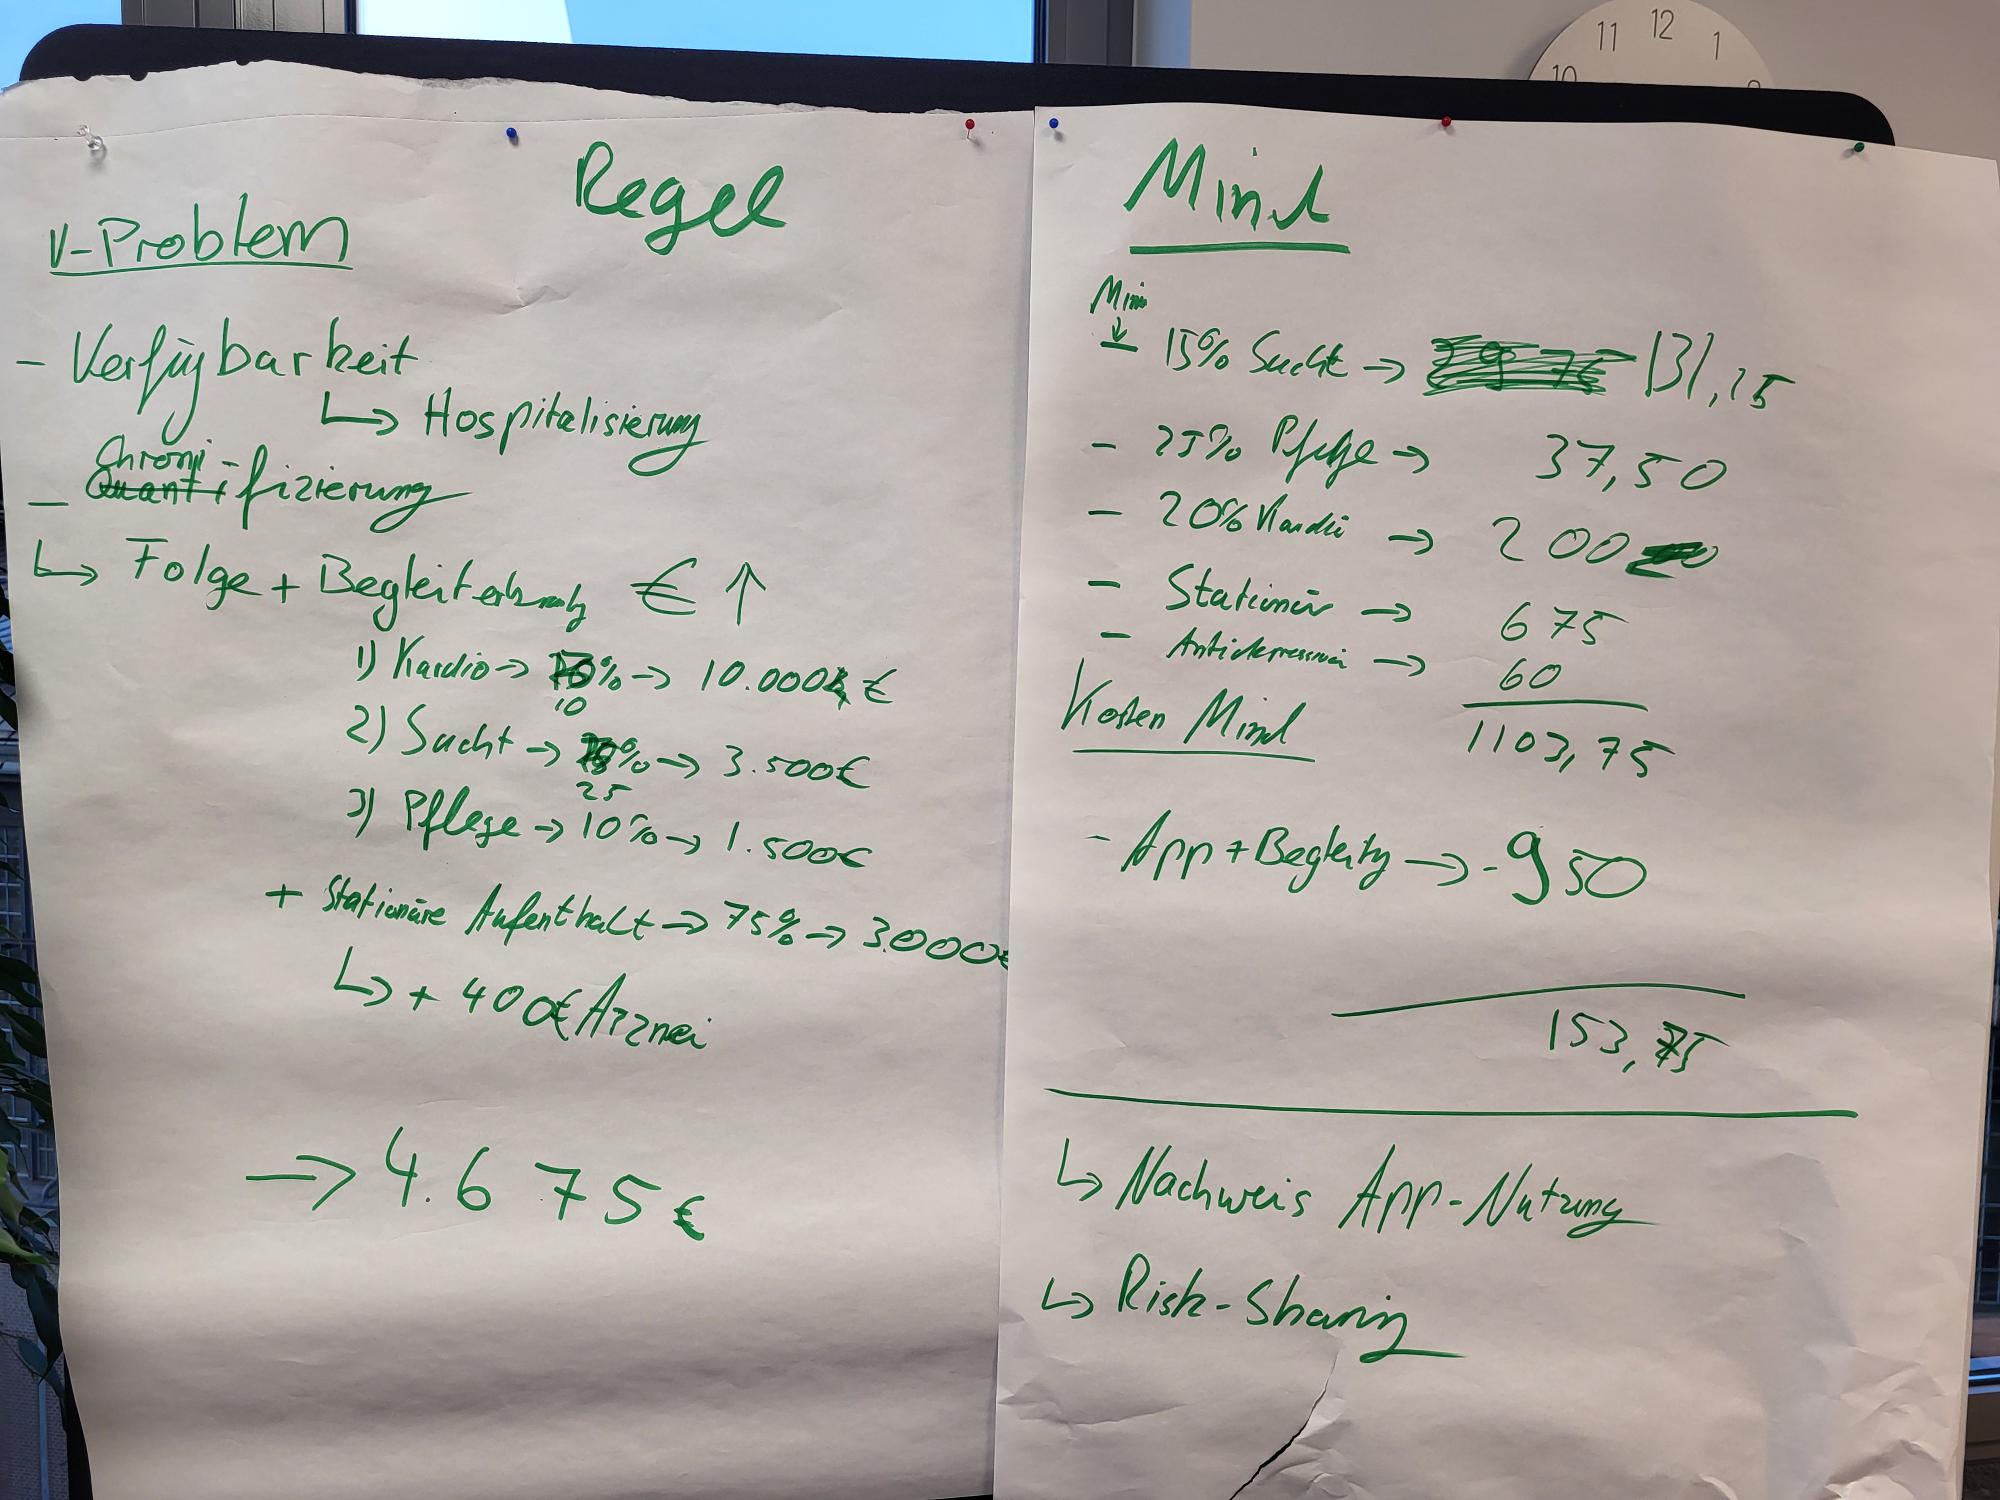 11 12 1
10
Regel
V-Problem
- Verfügbarkeit
↳ Hospitalisierung
Chroni-
- Quantifizierung
↳ Folge + Begleiterkrankung € ↑
1) Kardio → % → 10.000 €
10
2) Sucht → % → 3.500€
25
3) Pflege → 10% → 1.500€
+ Stationäre Aufenthalt → 75% → 3.000€
↳ + 400€ Arznei
→ 4.675€
Mind
Min
↓
- 15% Sucht → 131,25
- 25% Pflege → 37,50
- 20% Kardio → 200
- Stationär → 675
- Antidepressiva → 60
Kosten Mind 1103,75
- App + Begleitg → - 950
153,75
↳ Nachweis App-Nutzung
↳ Risk-Sharing